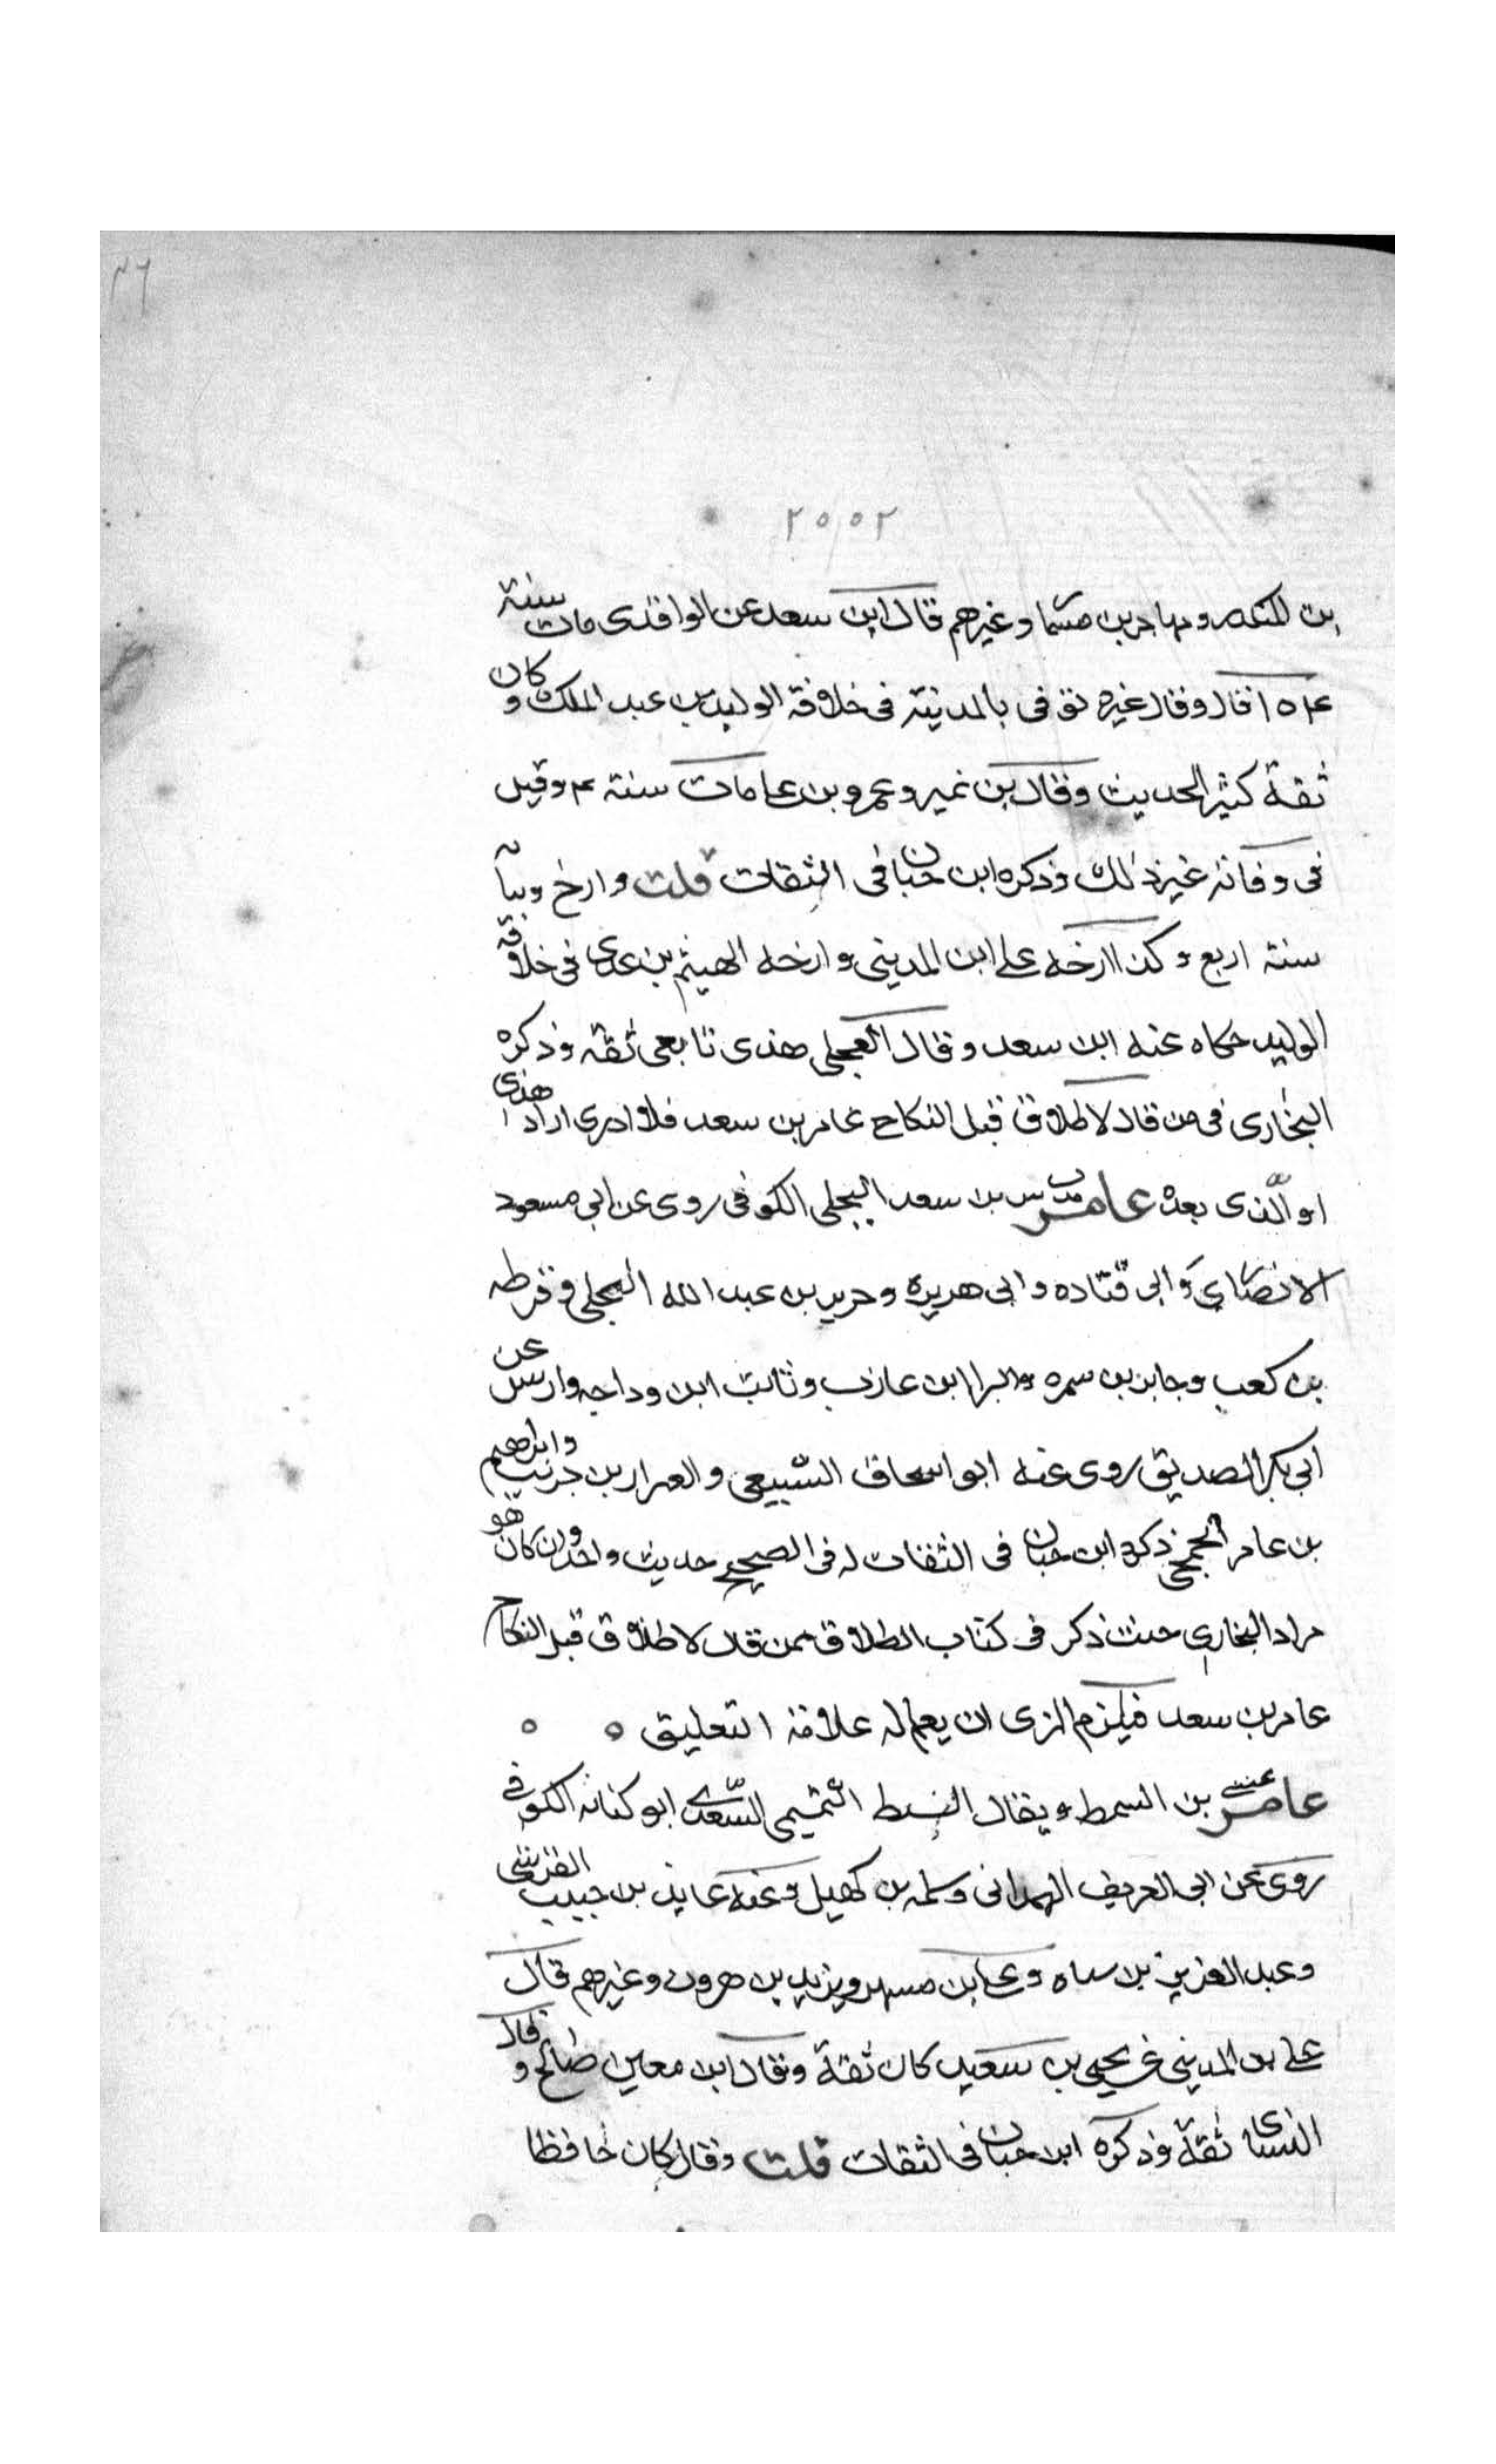 ٢٥٥٢
بن المنكدر و مهاجر بن مسما وغيرهم قال ابن سعد عن الواقدى مات سنة
١٠٤ قال وقال غيره توفى بالمدينة فى خلافة الوليد بن عبد الملك وكان
ثقة كثير الحديث وقال بن نمير وعمرو بن على مات سنة ٤ وقيل
فى وفاته غير ذلك وذكره ابن حبان فى الثقات قلت وارخ
سنة اربع وكذا ارخه على ابن المدينى وارخه الهيثم بن عدى فى خلافة
الوليد حكاه عنه ابن سعد وقال العجلى مدنى تابعى ثقة وذكره
البخارى فى من قال لا طلاق قبل النكاح عامر بن سعد فلا ادرى اراد هذا
او الذى بعده عامر بن سعد البجلى الكوفى روى عن ابى مسعود
الانصارى وابى قتاده وابى هريره وجرير بن عبد الله البجلى وقرظه
بن كعب وجابر بن سمره والبرا ابن عازب وثابت ابن وداعه وارسل عن
ابى بكر الصديق روى عنه ابو اسحاق السبيعى والعيزار بن حريث وابراهيم
بن عامر الجمحى ذكره ابن حبان فى الثقات له فى الصحيح حديث واحد وان كان هو
مراد البخارى حيث ذكر فى كتاب الطلاق ممن قال لا طلاق قبل النكاح
عامر بن سعد فيلزم المزى ان يعلم له علامة التعليق
عامر بن السمط ويقال السبط التميمى السعدى ابو كنانه الكوفى
روى عن ابى الغريف الهمدانى وسلمه بن كهيل وعنه عايذ بن حبيب القرشى
وعبد العزيز بن سياه وعلى ابن مسهر ويزيد بن هرون وغيرهم قال
على بن المدينى عن يحيى بن سعيد كان ثقة وقال ابن معين صالح وقال
النساى ثقة وذكره ابن حبان فى الثقات قلت وقال كان حافظا